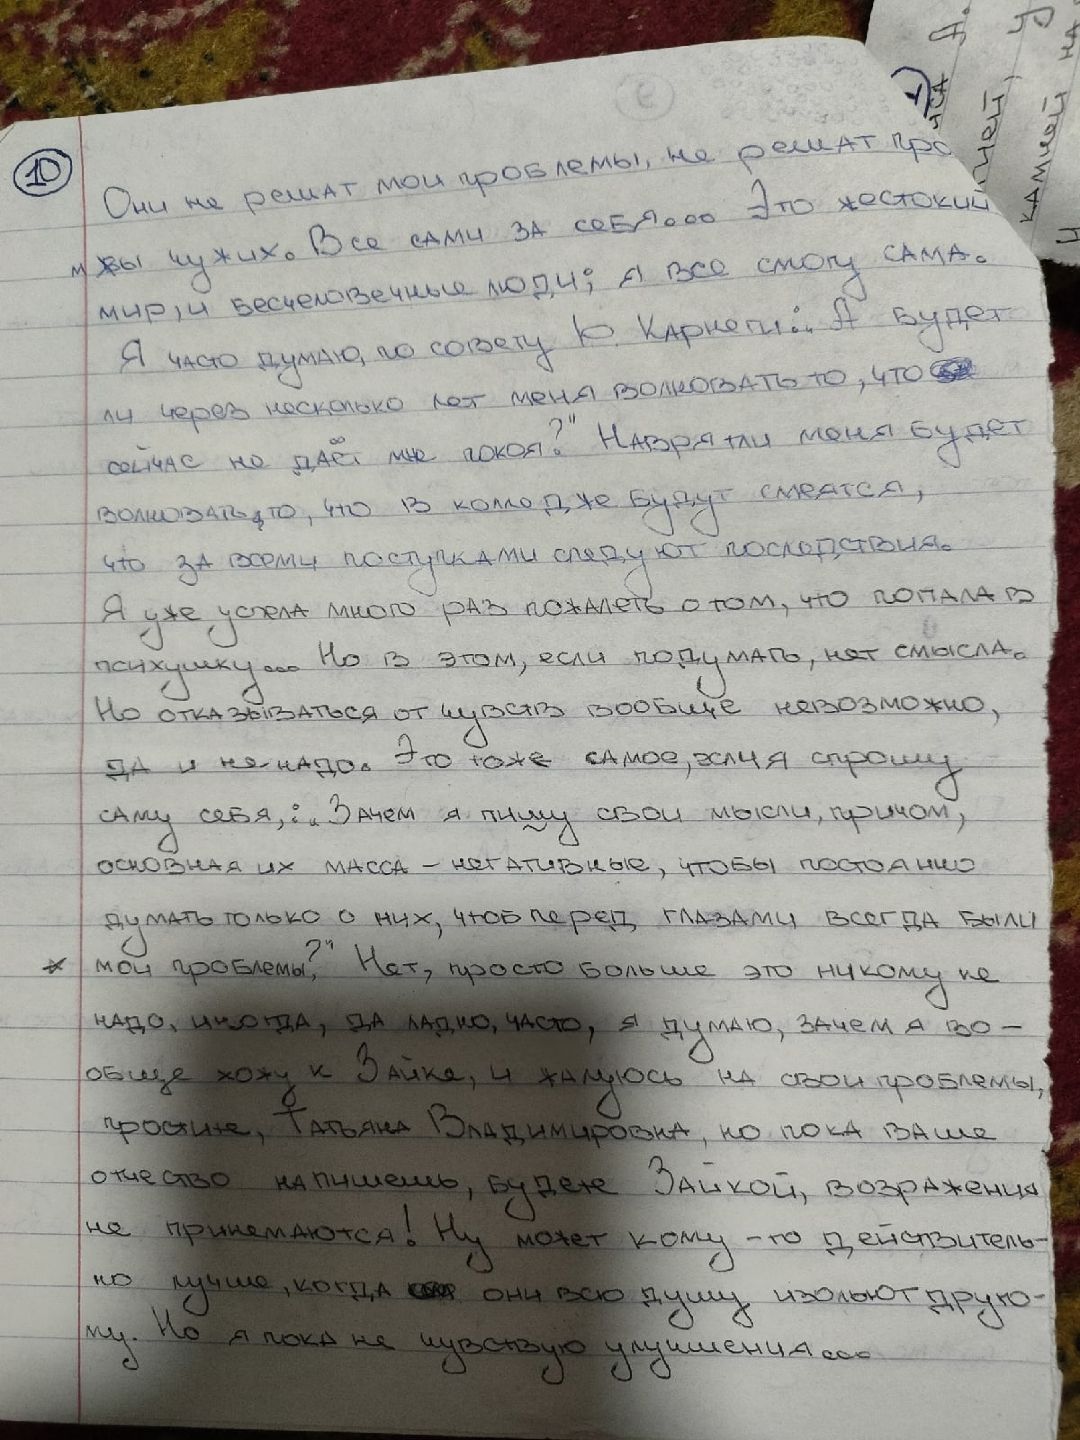 10
Они не решат мои проблемы, не решат про
мы чужих. Все сами за себя... Это жестокий
мир, и бесчеловечные люди; я все смогу сама.
Я часто думаю, по совету Ю. Карнеги: „А будет
ли через несколько лет меня волновать то, что
сейчас не даёт мне покоя?" Наврятли меня будет
волновать, то, что в колледже будут смеятся,
что за всеми поступками следуют последствия.
Я уже успела много раз пожалеть о том, что попала в
психушку... Но в этом, если подумать, нет смысла.
Но отказываться от чувств вообще невозможно,
да и не надо. Это тоже самое, если я спрошу
саму себя,: „Зачем я пишу свои мысли, причом,
основная их масса – негативные, чтобы постоянно
думать только о них, чтоб перед глазами всегда были
* мои проблемы?" Нет, просто больше это никому не
надо, иногда, да ладно, часто, я думаю, зачем я во–
обще хожу к Зайке, и жалуюсь на свои проблемы,
простите, Татьяна Владимировна, но пока ваше
отчество напишешь, будете Зайкой, возражения
не принемаются! Ну может кому-то действитель-
но лучше, когда они всю душу изольют друго-
му. Но я пока не чувствую улучшения...